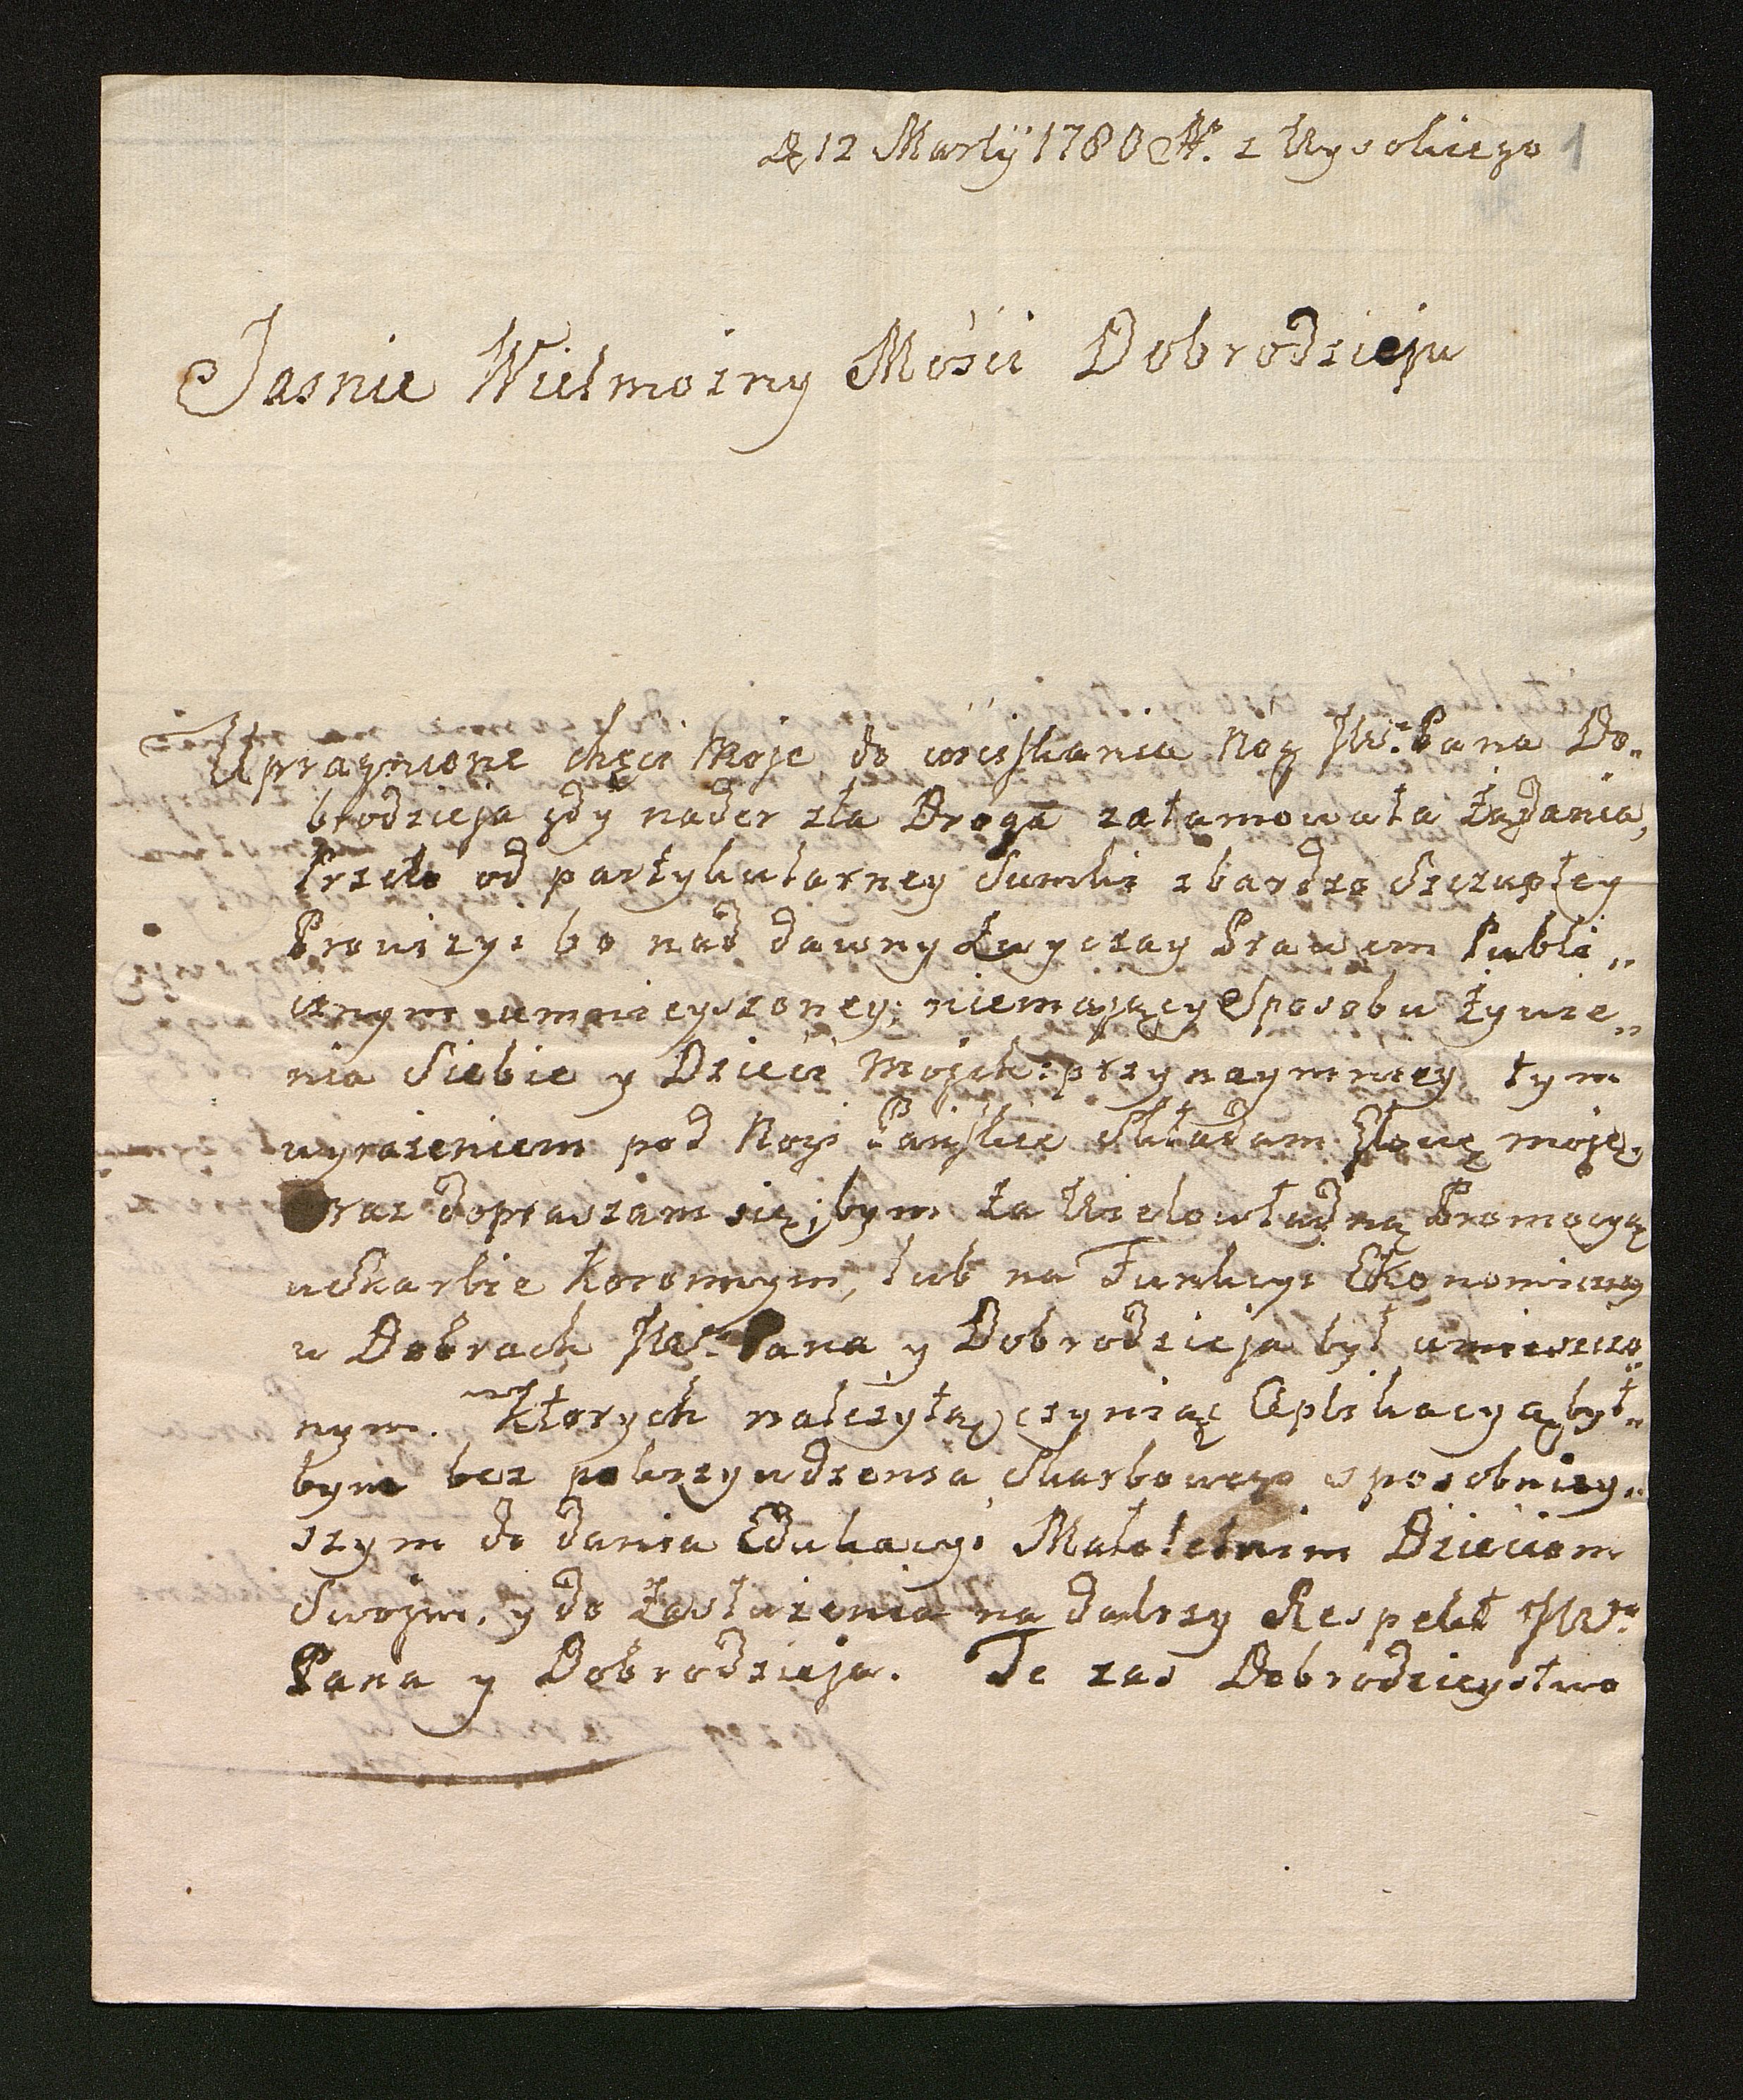 D 12 Martÿ 1780 Aº. z Wysokiego 1
Jasnie Wielmozny Mosći Dobrodzieju
Upragnione chęci Moje do usciskania Nog JWº. Pana Do„
brodzieja gdy nader zła Droga zatamowała Żądania,
Przeto od partykularney Sumki z bardzo Szczupłey
Prowizyi bo nad dawny Zwyczay Prawem Publi„
cznym umnieyszoney, niemający Sposobu Żywie„
nia Siebie y Dzieci Mojch: przynaymniey tym
wyrazeniem pod Nogi Pańskie Składam Głowę moję.
Oraz dopraszam się, bym za Wielowładną Promocyą
w Skarbie Koronnym, lub na Funkcyi Ekonomiczney
w Dobrach JWº. Pana y Dobrodzieja był umieszczo„
nym. w Ktorych nalezytą czyniąc Aplikacyą, był„
bym bez pokrzywdzenia Skarbowego sposobniey„
szym do dania Edukacyi Małoletnim Dzieciom
Swojm, y do Zasłuzenia na dalszy Respekt JWº.
Pana y Dobrodzieja. Te zas Dobrodzieystwo